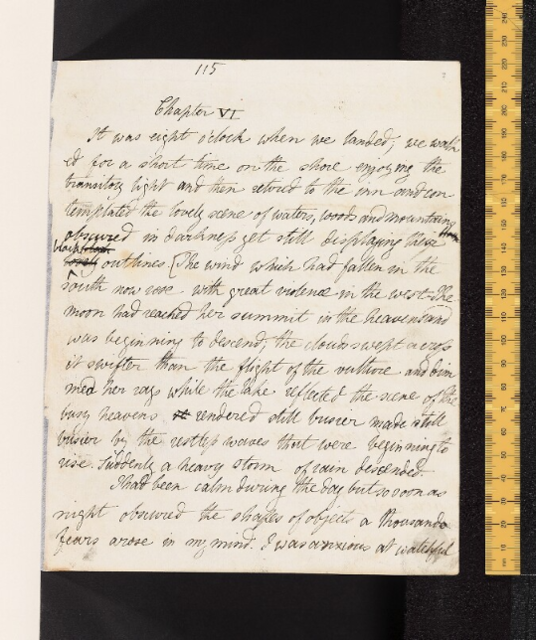 115
Chapter VI
It was eight oclock when we landed, we walk
ed for a short time on the shore enjoying the
transitory light and then retired to the inn and con
templated the lovely scene of waters, woods and mountains
obscured in darkness yet still displaying their
black
outlines [The wind which had fallen in the
south now rose with great violence in the west The
moon had reached her summit in the heavens and
was beginning to descend; the clouds swept across
it swifter than the flight of the vulture and dim
med her rays while the lake reflected the scene of the
busy heavens rendered still busier made still
busier by the restless waves that were beginning to
rise. Suddenly a heavy storm of rain descended.
I had been calm during the day but so soon as
night obscured the shapes of objects a thousand
fears arose in my mind. I was anxious at watchful